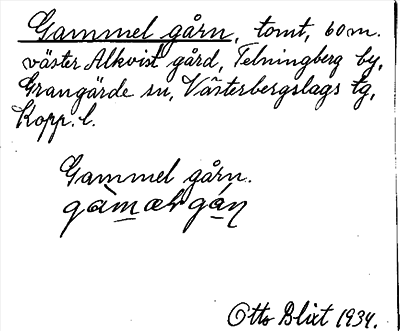 Gammel gårn, tomt, 60 m.
väster Alkvist gård, Telningberg by,
Grangärde sn, Västerbergslags tg,
Kopp. l.
Gammel gårn.
Otto Blixt 1934.